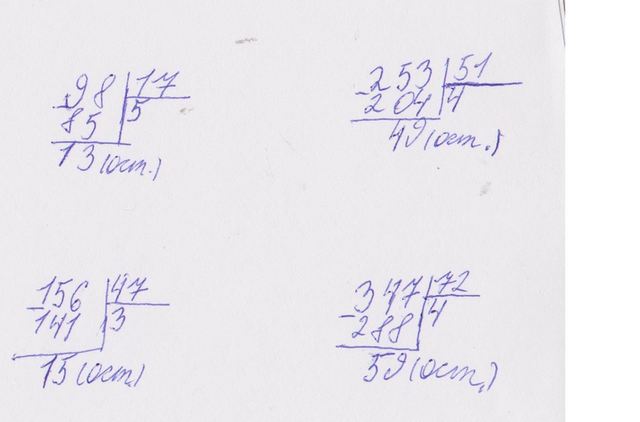 -98|17
85|5
13(ост.)
-253|51
204|4
49(ост.)
-156|47
141|3
15(ост.)
-347|72
288|4
59(ост.)